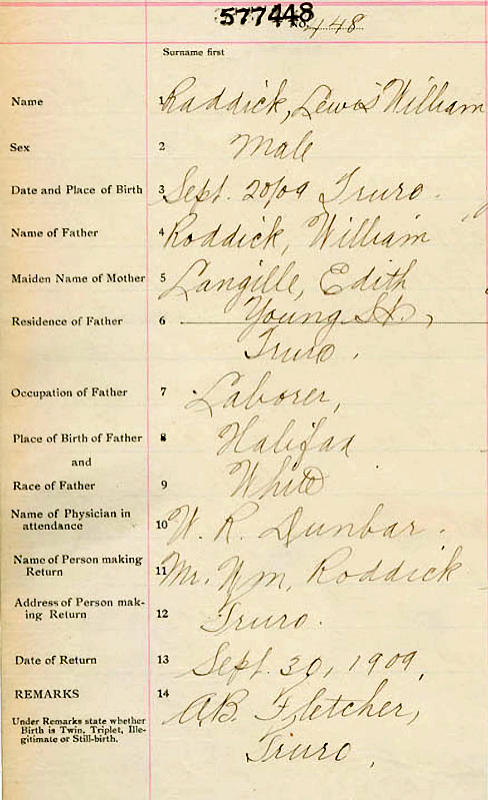 577448
No. 148
Surname first
Name 1 Roddick, Lewis William
Sex 2 Male
Date and Place of Birth 3 Sept. 20/09 Truro.
Name of Father 4 Roddick, William
Maiden Name of Mother 5 Langille, Edith
Residence of Father 6 Young St.,
Truro.
Occupation of Father 7 Laborer,
Place of Birth of Father 8 Halifax
and
Race of Father 9 White
Name of Physician in
attendance 10 W. R. Dunbar.
Name of Person making
Return 11 Mr. Wm. Roddick
Address of Person mak-
ing Return 12 Truro.
Date of Return 13 Sept. 30, 1909,
REMARKS 14 A.B. Fletcher,
Under Remarks state whether
Birth is Twin, Triplet, Ille-
gitimate or Still-birth.
Truro,